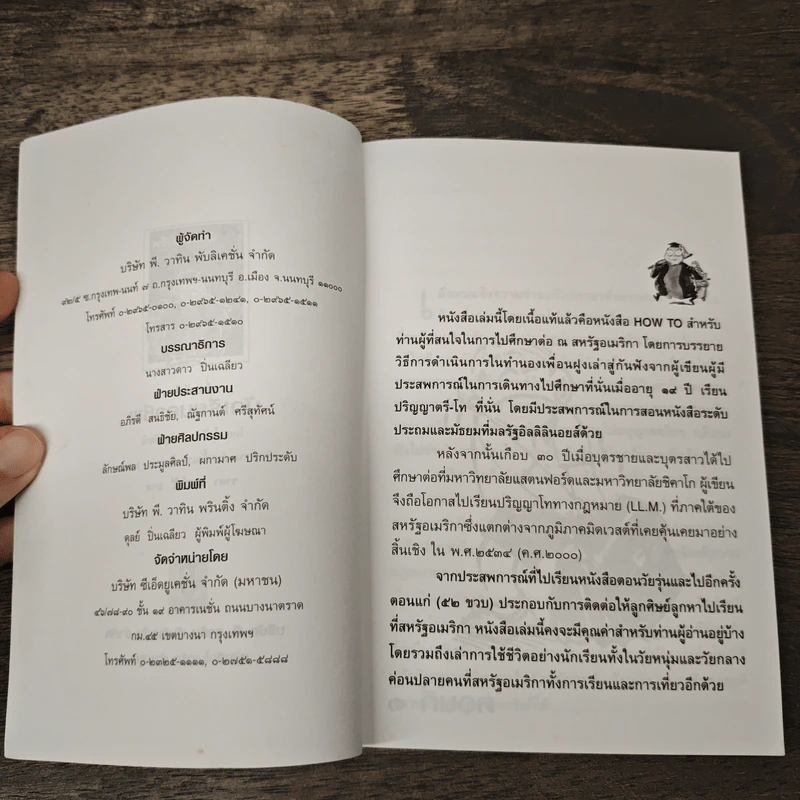 ผู้จัดทำ
บริษัท พี. วาทิน พับลิเคชั่น จำกัด
๙๒/๕ ซ.กรุงเทพ-นนท์ ๗ ถ.กรุงเทพฯ-นนทบุรี อ.เมือง จ.นนทบุรี ๑๑๐๐๐
โทรศัพท์ ๐-๒๙๖๕-๐๑๐๐, ๐-๒๙๖๕-๑๒๔๑, ๐-๒๙๖๕-๑๕๑๑
โทรสาร ๐-๒๙๖๕-๑๕๑๐
บรรณาธิการ
นางสาวดาว ปิ่นเฉลียว
ฝ่ายประสานงาน
อภิรดี สนธิชัย, ณัฐกานต์ ศรีสุทัศน์
ฝ่ายศิลปกรรม
ลักษณ์พล ประมูลศิลป์, ผกามาศ ปริกประดับ
พิมพ์ที่
บริษัท พี. วาทิน พรินติ้ง จำกัด
ดุลย์ ปิ่นเฉลียว ผู้พิมพ์ผู้โฆษณา
จัดจำหน่ายโดย
บริษัท ซีเอ็ดยูเคชั่น จำกัด (มหาชน)
๔๖/๘๗-๙๐ ชั้น ๑๙ อาคารเนชั่น ถนนบางนาตราด
กม.๔๕ เขตบางนา กรุงเทพฯ
โทรศัพท์ ๐-๒๓๒๕-๑๑๑๑, ๐-๒๗๕๑-๕๘๘๘
หนังสือเล่มนี้โดยเนื้อแท้แล้วคือหนังสือ HOW TO สำหรับ
ท่านผู้ที่สนใจในการไปศึกษาต่อ ณ สหรัฐอเมริกา โดยการบรรยาย
วิธีการดำเนินการในทำนองเพื่อนฝูงเล่าสู่กันฟังจากผู้เขียนผู้มี
ประสพการณ์ในการเดินทางไปศึกษาที่นั่นเมื่ออายุ ๑๙ ปี เรียน
ปริญญาตรี-โท ที่นั่น โดยมีประสพการณ์ในการสอนหนังสือระดับ
ประถมและมัธยมที่มลรัฐอิลลิลินอยส์ด้วย
หลังจากนั้นเกือบ ๓๐ ปีเมื่อบุตรชายและบุตรสาวได้ไป
ศึกษาต่อที่มหาวิทยาลัยแสตนฟอร์ดและมหาวิทยาลัยชิคาโก ผู้เขียน
จึงถือโอกาสไปเรียนปริญญาโททางกฎหมาย (LL.M.) ที่ภาคใต้ของ
สหรัฐอเมริกาซึ่งแตกต่างจากภูมิภาคมิดเวสต์ที่เคยคุ้นเคยมาอย่าง
สิ้นเชิง ใน พ.ศ.๒๕๓๔ (ค.ศ.๒๐๐๐)
จากประสพการณ์ที่ไปเรียนหนังสือตอนวัยรุ่นและไปอีกครั้ง
ตอนแก่ (๕๒ ขวบ) ประกอบกับการติดต่อให้ลูกศิษย์ลูกหาไปเรียน
ที่สหรัฐอเมริกา หนังสือเล่มนี้คงจะมีคุณค่าสำหรับท่านผู้อ่านอยู่บ้าง
โดยรวมถึงเล่าการใช้ชีวิตอย่างนักเรียนทั้งในวัยหนุ่มและวัยกลาง
ค่อนปลายคนที่สหรัฐอเมริกาทั้งการเรียนและการเที่ยวอีกด้วย